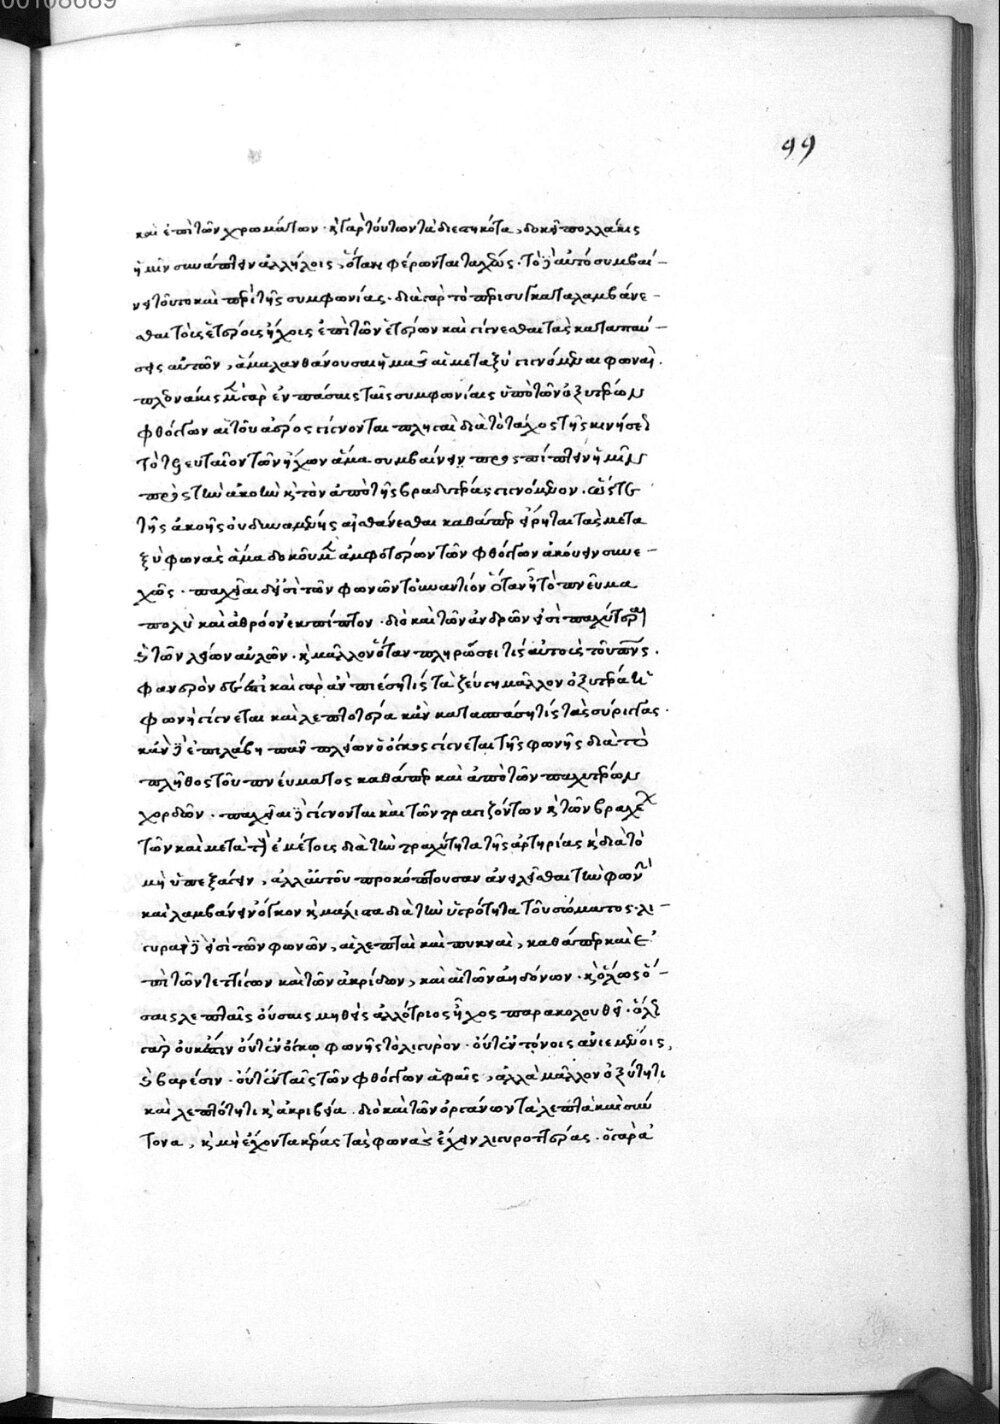 00108689
99
καὶ ἐπὶ τῶν χρωμάτων· κ γὰρ τούτων τὰ διεστηκότα, δοκεῖ πολλάκις
ἡμῖν συνάπτειν ἀλλήλοις, ὅταν φέρωνται ταχέως· τὸ δ αὐτὸ συμβαί-
νει τοῦτο καὶ περὶ τῆς συμφωνίας· διὰ γὰρ τὸ περισυγκαταλαμβάνε-
σθαι τοὺς ἑτέροις ἤχοις ἐπὶ τῶν ἑτέρων καὶ γίγνεσθαι τὰς καταπαύ-
σεις αὐτῶν, ἅμα λανθάνουσαι ἡμᾶς αἱ μεταξὺ γιγνόμεναι φωναί.
πλεονάκις μ γὰρ ἐν πάσαις ταῖς συμφωνίαις ὑπὸ τῶν ὀξυτέρων
φθόγγων αἱ τοῦ ἀέρος γίγνονται πληγαὶ διὰ τὸ τάχος τῆς κινήσεως
τὸ τελευταῖον τῶν ἤχων ἅμα συμβαίνειν προσπίπτειν ἡμῖν
πρὸς τὴν ἀκοὴν κ τὸν ἀπὸ τῆς βραδυτέρας γιγνόμενον· ὥστε
τῆς ἀκοῆς οὐ δυναμένης αἰσθάνεσθαι καθάπερ εἴρηται τὰς μετα
ξὺ φωνὰς ἅμα δοκοῦμεν ἀμφοτέρων τῶν φθόγγων ἀκούειν συνε-
χῶς· παχεῖαι δ εἰσὶ τῶν φωνῶν τοὐναντίον ὅταν ᾖ τὸ πνεῦμα
πολὺ καὶ ἀθρόον ἐκπίπτον· διὸ καὶ τῶν ἀνδρῶν εἰσὶ παχύτεραι
κ τῶν τελείων αὐλῶν· κ μᾶλλον ὅταν πληρώσει τις αὐτοὺς τοῦ πνς.
φανερὸν δ ἐστί καὶ γὰρ ἂν πιέσῃ τις τὰ ζεύγη μᾶλλον ὀξυτέρα ἡ
φωνὴ γίγνεται καὶ λεπτοτέρα κἂν κατασπάσῃ τις τὰς σύριγγας·
κἂν δ ἐπιλάβῃ παμπλείων ὁ ὄγκος γίγνεται τῆς φωνῆς διὰ τὸ
πλῆθος τοῦ πνεύματος καθάπερ καὶ ἀπὸ τῶν παχυτέρων
χορδῶν· παχεῖαι δ γίγνονται καὶ τῶν τραγιζόντων κ τῶν βραγχ
των καὶ μετὰ τοὺς ἐμέτοις διὰ τὴν τραχύτητα τῆς ἀρτηρίας κ διὰ τὸ
μὴ ὑπεξάγειν, ἀλλ αὐτοῦ προκόπτουσαν ἀνειλεῖσθαι τὴν φωνὴν
καὶ λαμβάνειν ὄγκον κ μάλιστα διὰ τὴν ὑγρότητα τοῦ σώματος· λι-
γυραὶ δ εἰσὶ τῶν φωνῶν, αἱ λεπταὶ καὶ πυκναὶ, καθάπερ καὶ ἐ
πὶ τῶν τεττίγων καὶ τῶν ἀκρίδων, καὶ αἱ τῶν ἀηδόνων· κ ὅλως ὅ-
σαις λεπταῖς οὔσαις μηθεὶς ἀλλότριος ἦχος παρακολουθεῖ· ὅλως
γὰρ οὐκ ἔστιν οὔτ ἐν ὄγκῳ φωνῆς τὸ λιγυρὸν· οὔτ ἐν τόνοις ἀνιεμένοις,
κ βαρέσιν· οὔτ ἐν ταῖς τῶν φθόγγων ἁφαῖς, ἀλλὰ μᾶλλον ὀξύτητι
καὶ λεπτότητι κ ἀκριβείᾳ. διὸ καὶ τῶν ὀργάνων τὰ λεπτὰ καὶ σύν
τονα, κ μὴ ἔχοντα κέρας τὰς φωνὰς ἔχειν λιγυρωτέρας· ὁ γὰρ ἀ